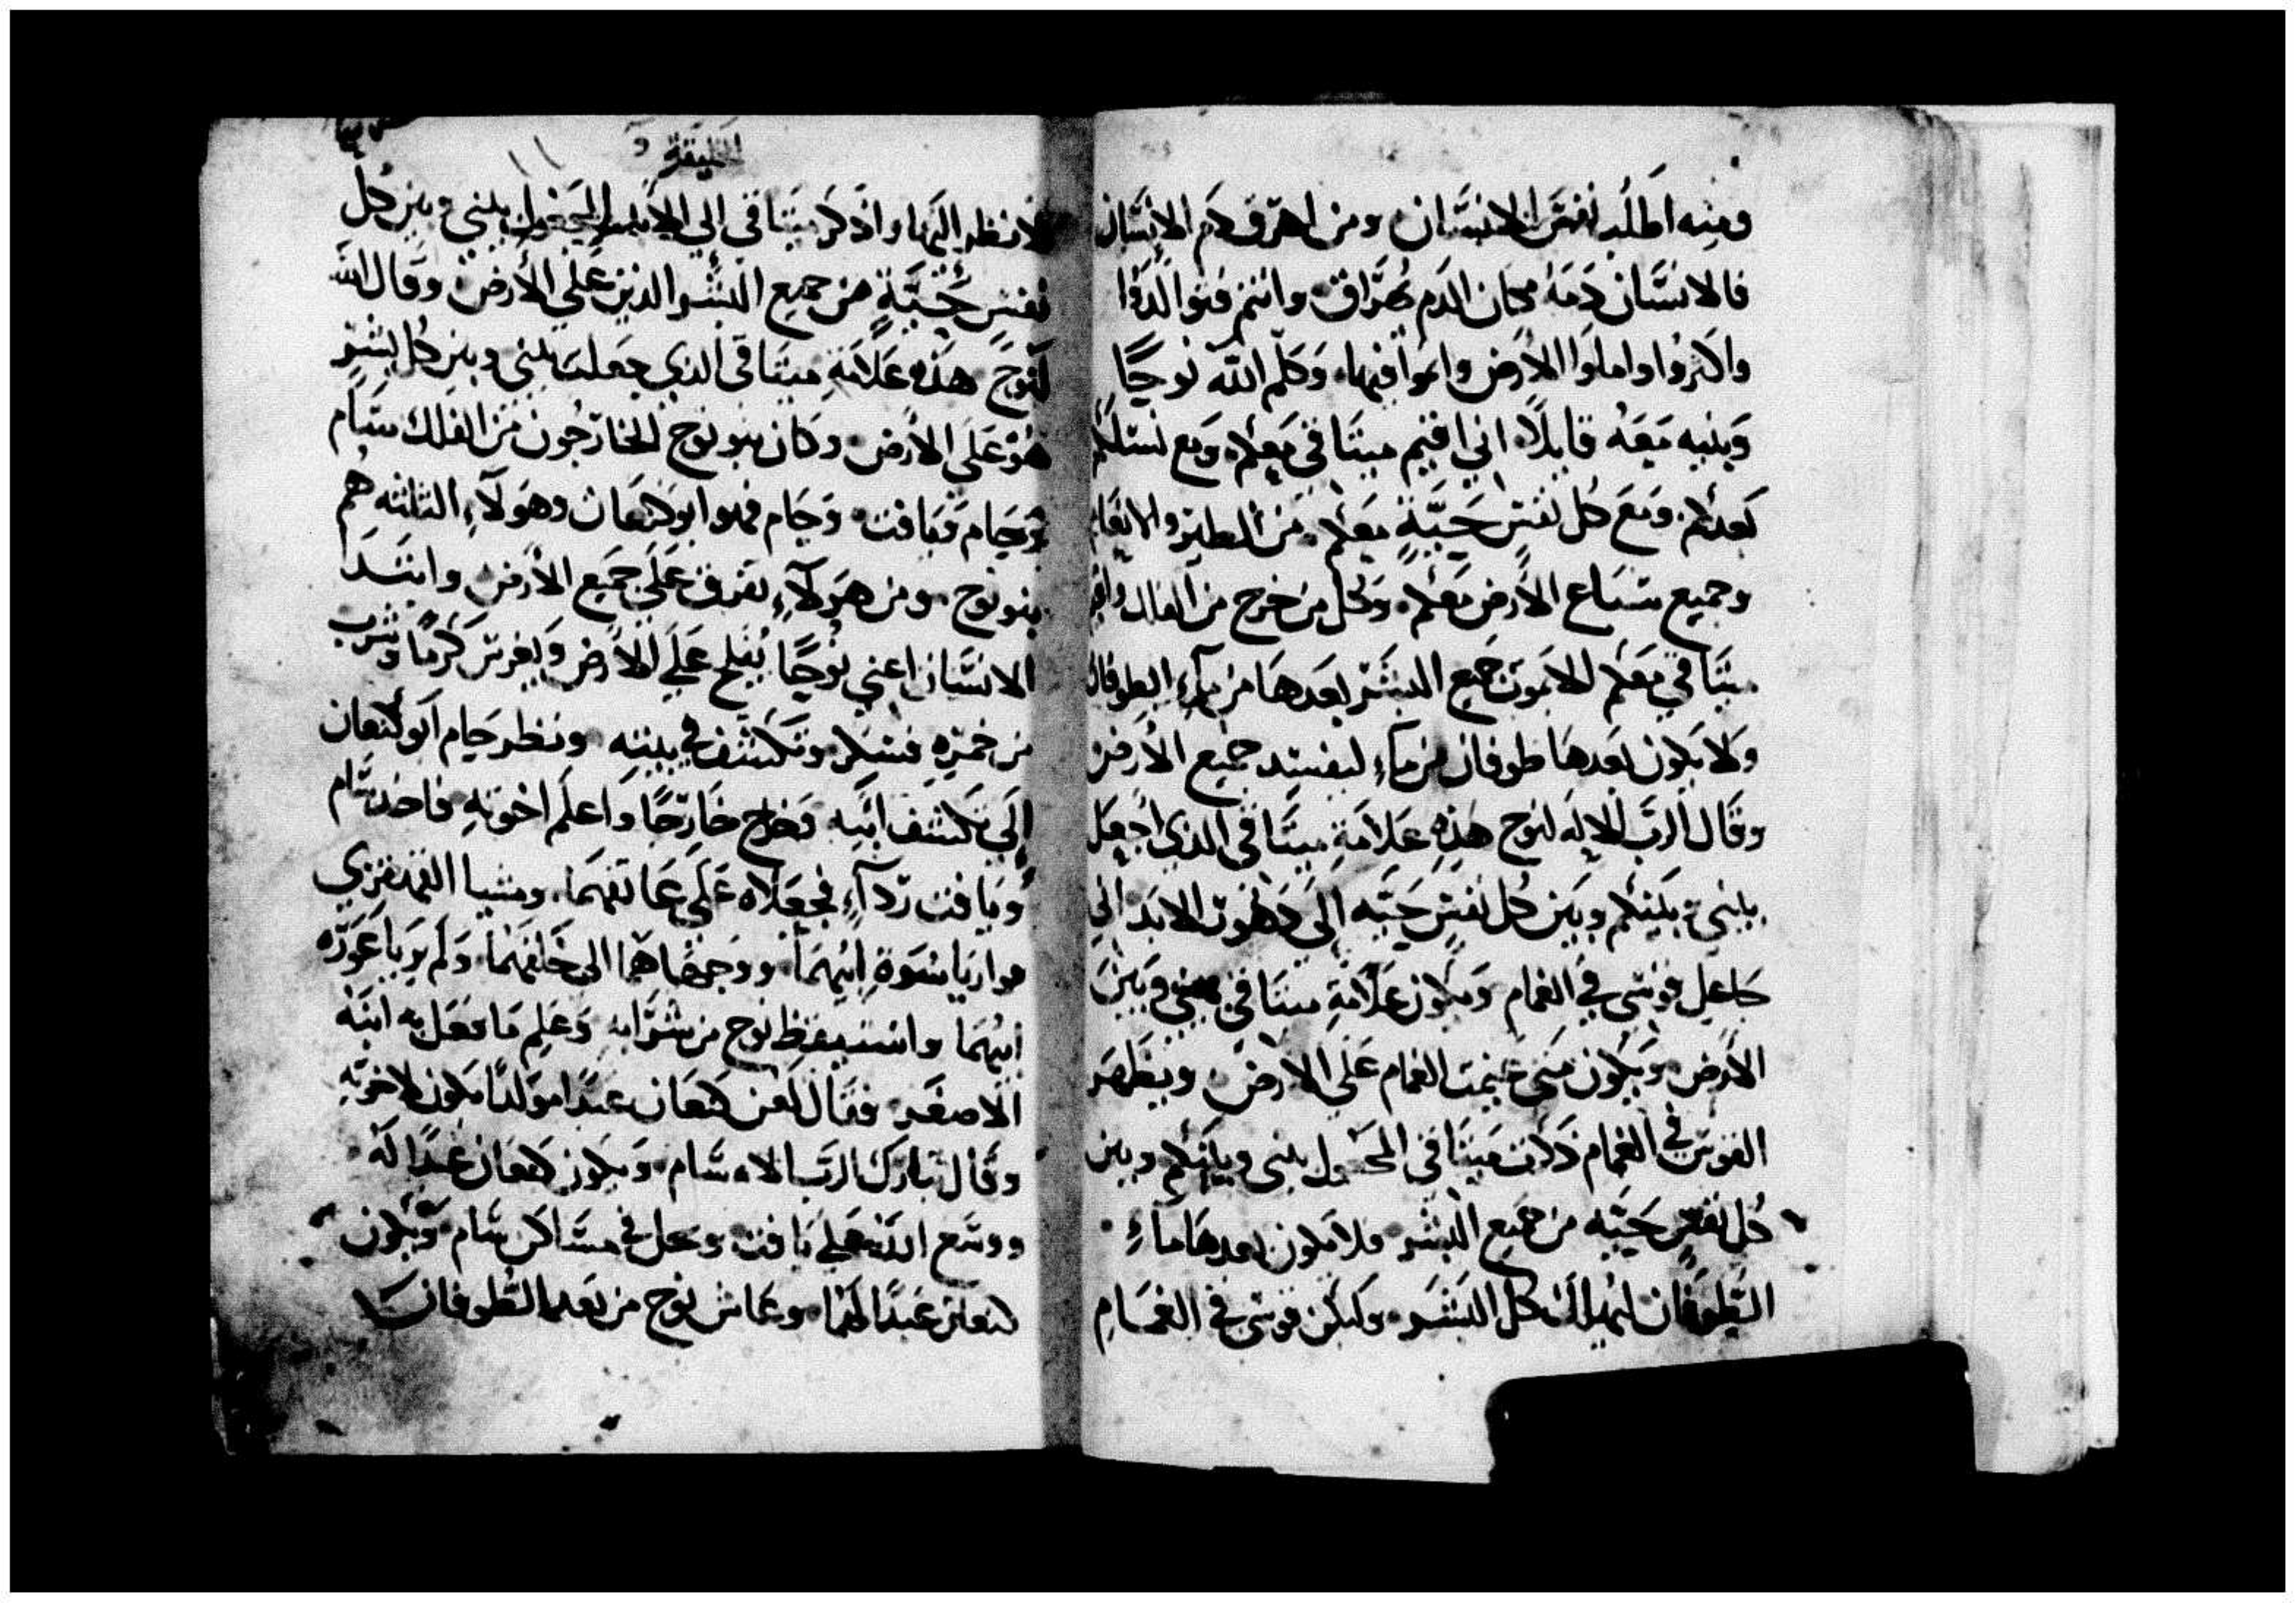 ومنه اطلب نفس الانسان ومن اهرق دم الانسان
فالانسان دمه مكان الدم يهراق وانتم فتوالدوا
واكثروا واملوا الارض وانموا فيها وكلم الله نوحًا
وبنيه معه قايلاً اني اقيم ميثاقي معكم ومع نسلكم
بعدكم ومع كل نفس حيّةٍ معكم من الطير والانعام
وجميع سباع الارض معكم وكل من خرج من الفلك واقيم
ميثاقي معكم لا يموت جميع البشر بعدها من مآءِ الطوفان
ولا يكون بعدها طوفان من مآءِ ليفسد جميع الارض
وقال الرب الاله لنوح هذه علامة ميثاقي الذي اجعل
بيني وبينكم وبين كل نفس حيّه إلى دهوت الابد اني
جاعل قوسي في الغمام وتكون علامة ميثاقي بيني وبين
الأرض ويكون متى غيمت الغمام على الارض ويظهر
القوس في الغمام ذكرت ميثاقي المجعول بيني وبينكم وبين
كل نفسٍ حيّه من جميع البشر فلا يكون بعدها ماءِ
الطوفان ليهلك كل البشر وليكن قوسي في الغمام
الخليقة
١١
لانظر اليها واذكر ميثاقي الي الابد المجعول بيني وبين كل
نفسٍ حيّةٍ من جميع البشر الذين على الأرض وقال الله
لنوح هذه علامة ميثاقي الذي جعلت بيني وبين كل بشرٍ
هو على الارض وكان بنو نوح الخارجون من الفلك سام
وحام ويافت وحام فهو ابو كنعان وهولآءِ الثلثه هم
بنو نوح ومن هولآءِ تفرق على جميع الأرض وابتدا
الانسان اعني نوحًا يفلح على الارض ويغرس كرمًا وشرب
من خمره فسكر وتكشف في بيته ونظر حام ابو كنعان
إلى تكشف ابيه فخرج خارجًا واعلم اخوته فاخذ سام
ويافت ردآءً فجعلاه على عاتقهما ومشيا القهقري
فواريا سوة ابيهما ووجهاهما الى خلفهما ولم يريا عورة
ابيهما واستيقظ نوح من شرابه وعلم ما فعل به ابنه
الاصغر فقال لعن كنعان عبدًا مولدًا يكون لاخوته
وقال تبارك الرب الاه سام ويكون كنعان عبدًا له
ووسع الله على يافت وحل في مساكن سام ويكون
كنعان عبدًا لهما وعاش نوح من بعد الطوفان